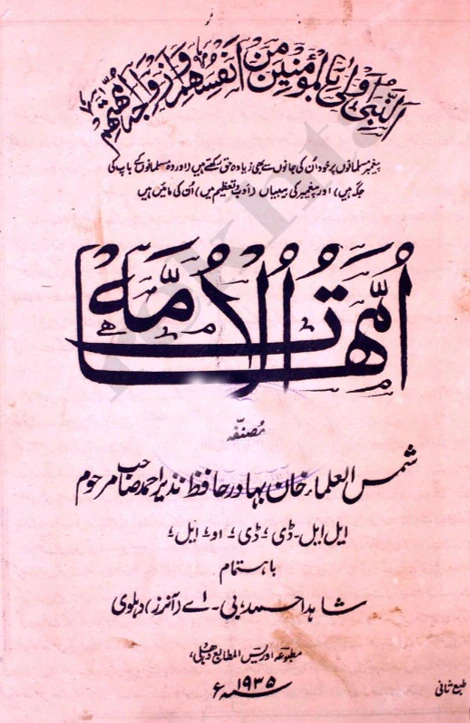 اَلنَّبِيُّ اَوْلٰى بِالْمُؤْمِنِيْنَ مِنْ اَنْفُسِهِمْ وَاَزْوَاجُهٗ اُمَّهٰتُهُمْ
پیغمبر مسلمانوں پر خود اُن کی جانوں سے بھی زیادہ حق رکھتے ہیں (اور وہ مسلمانوں کے باپ کی
جگہ ہیں) اور پیغمبر کی بیبیاں (ادب و تعظیم میں) اُن کی مائیں ہیں
اُمَّهَاتُ الْاُمَّه
مُصنّفہ
شمس العلماء خان بہادر حافظ نذیر احمد صاحب مرحوم
ایل ایل۔ ڈی؛ ڈی؛ او؛ ایل؛
باہتمام
شاہد احمد؛ بی۔ اے (آنرز) دہلوی
مطبوعہ ادریس المطابع دہلی؛
۱۹۳۵ء
طبع ثانی